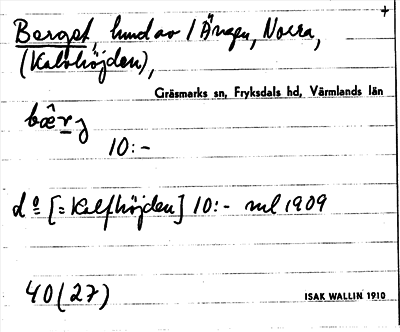 Berget, hmd av 1 Ängen, Norra,
(Kalvhöjden),
Gräsmarks sn, Fryksdals hd, Värmlands län
bæ̂rj
10:-
do [= Kalfhöjden] 10:- ml 1909
40(27)
ISAK WALLIN 1910